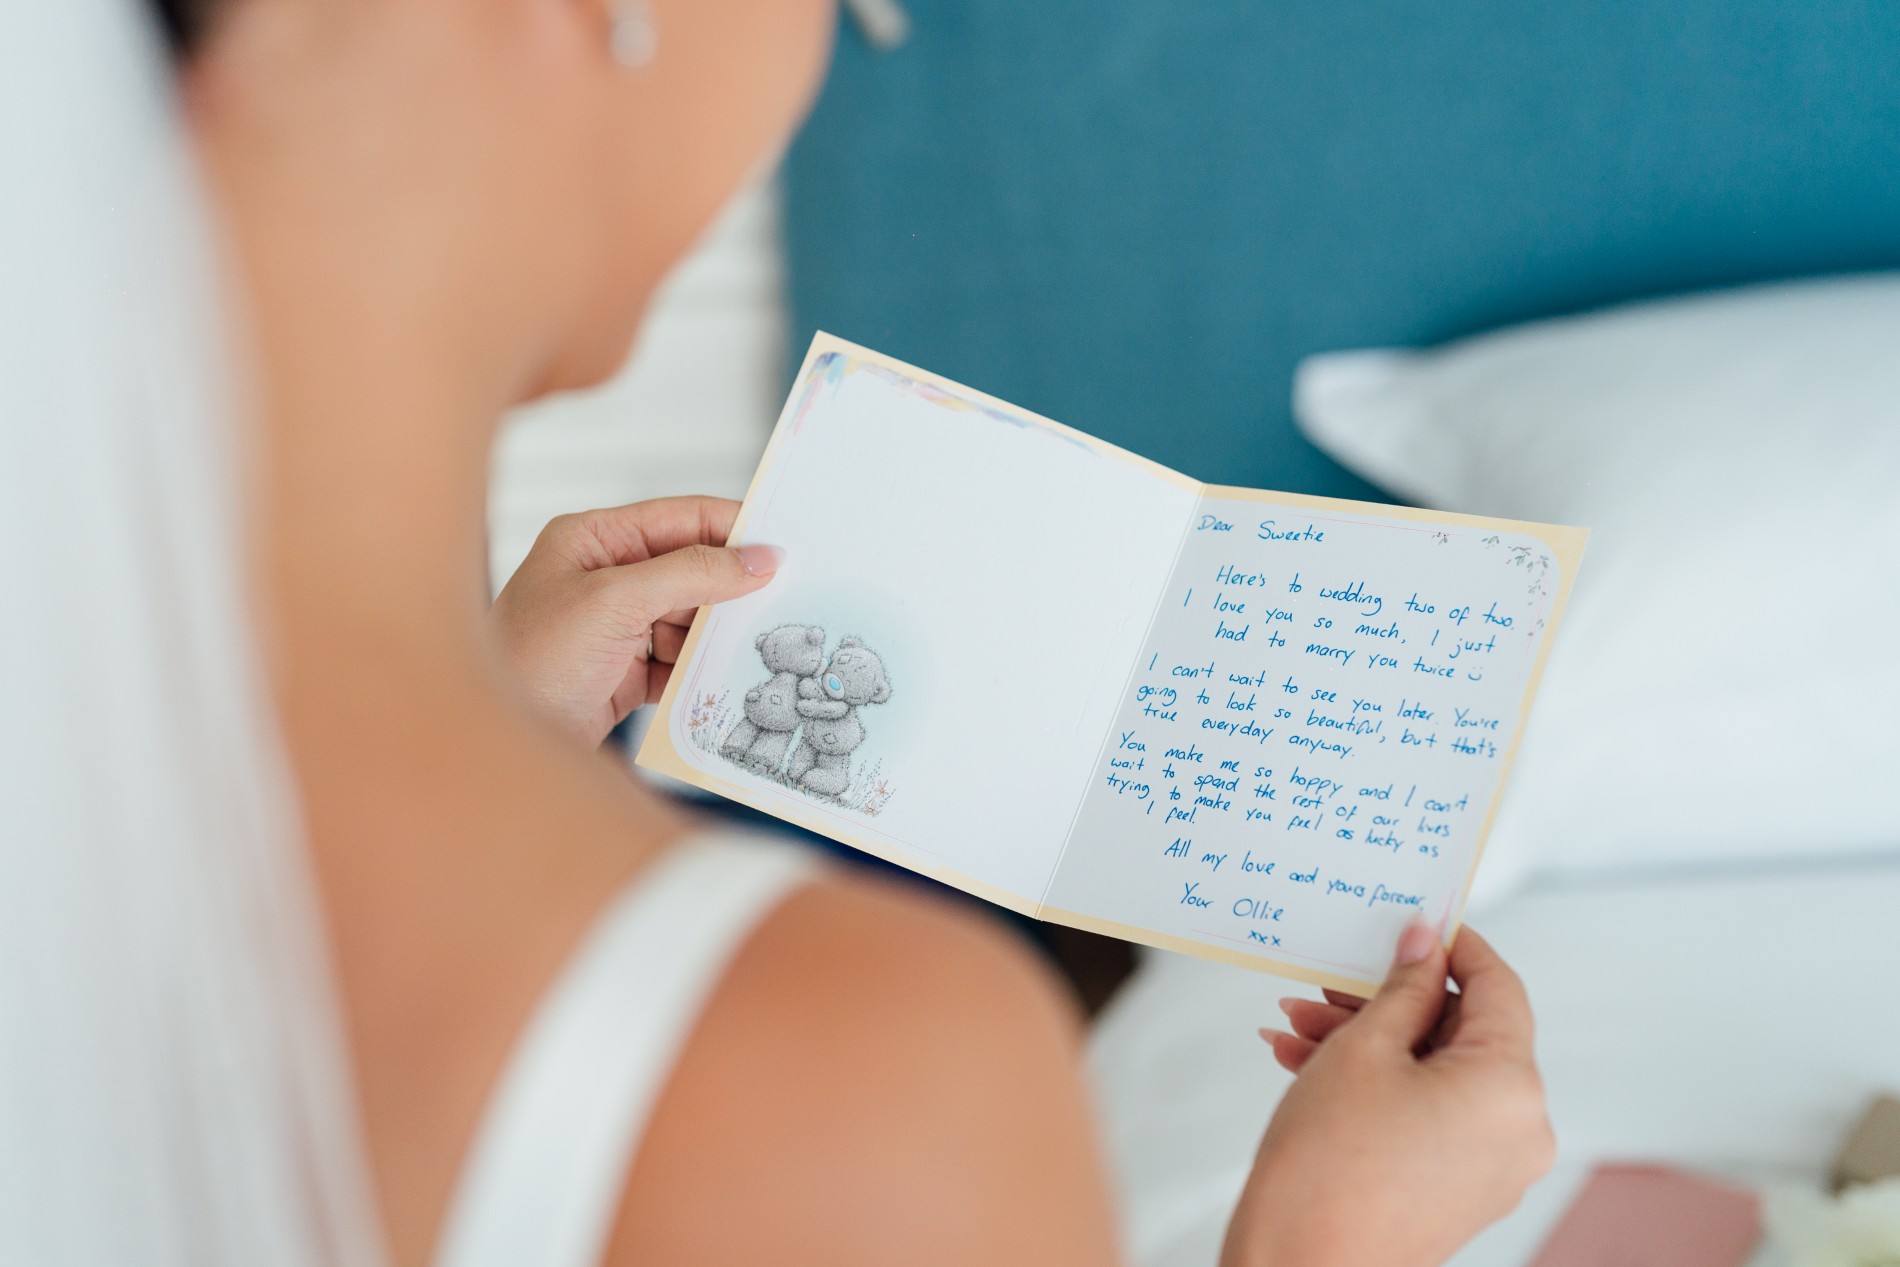 Dear Sweetie
Here's to wedding two of two.
I love you so much, I just
had to marry you twice :)
I can't wait to see you later. You're
going to look so beautiful, but that's
true everyday anyway.
You make me so happy and I can't
wait to spend the rest of our lives
trying to make you feel as lucky as
I feel.
All my love and yours forever,
Your Ollie
xxx